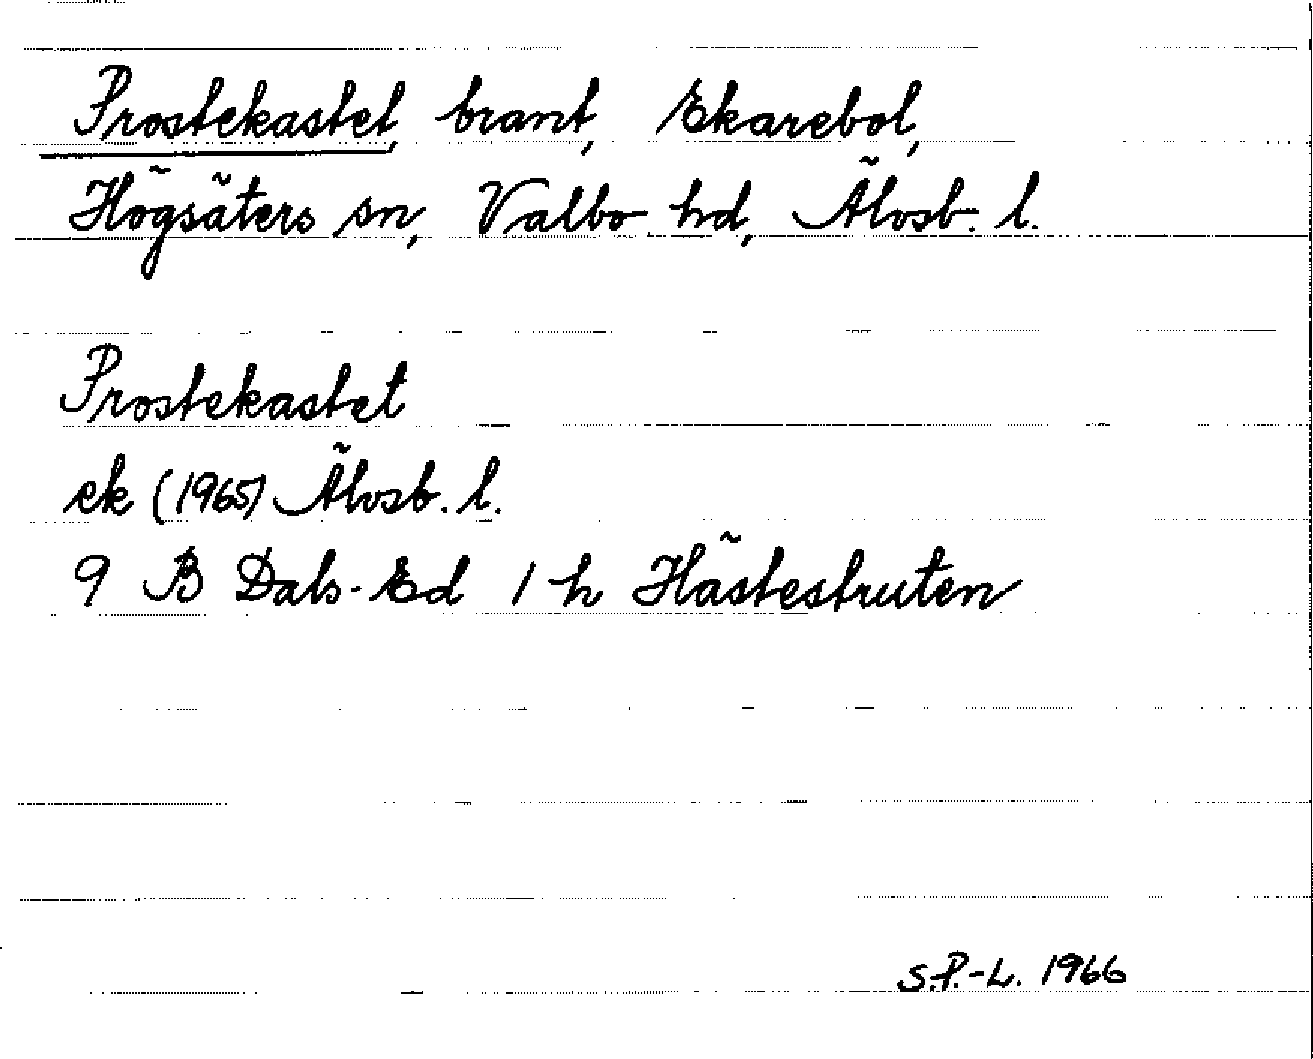 Prostekastet, brant, Ekarebol,
Högsäters sn, Valbo hd, Älvsb. l.
Prostekastet
ek (1965) Älvsb. l.
9 B Dals-Ed 1 h Hästestruten
S.P.-L. 1966